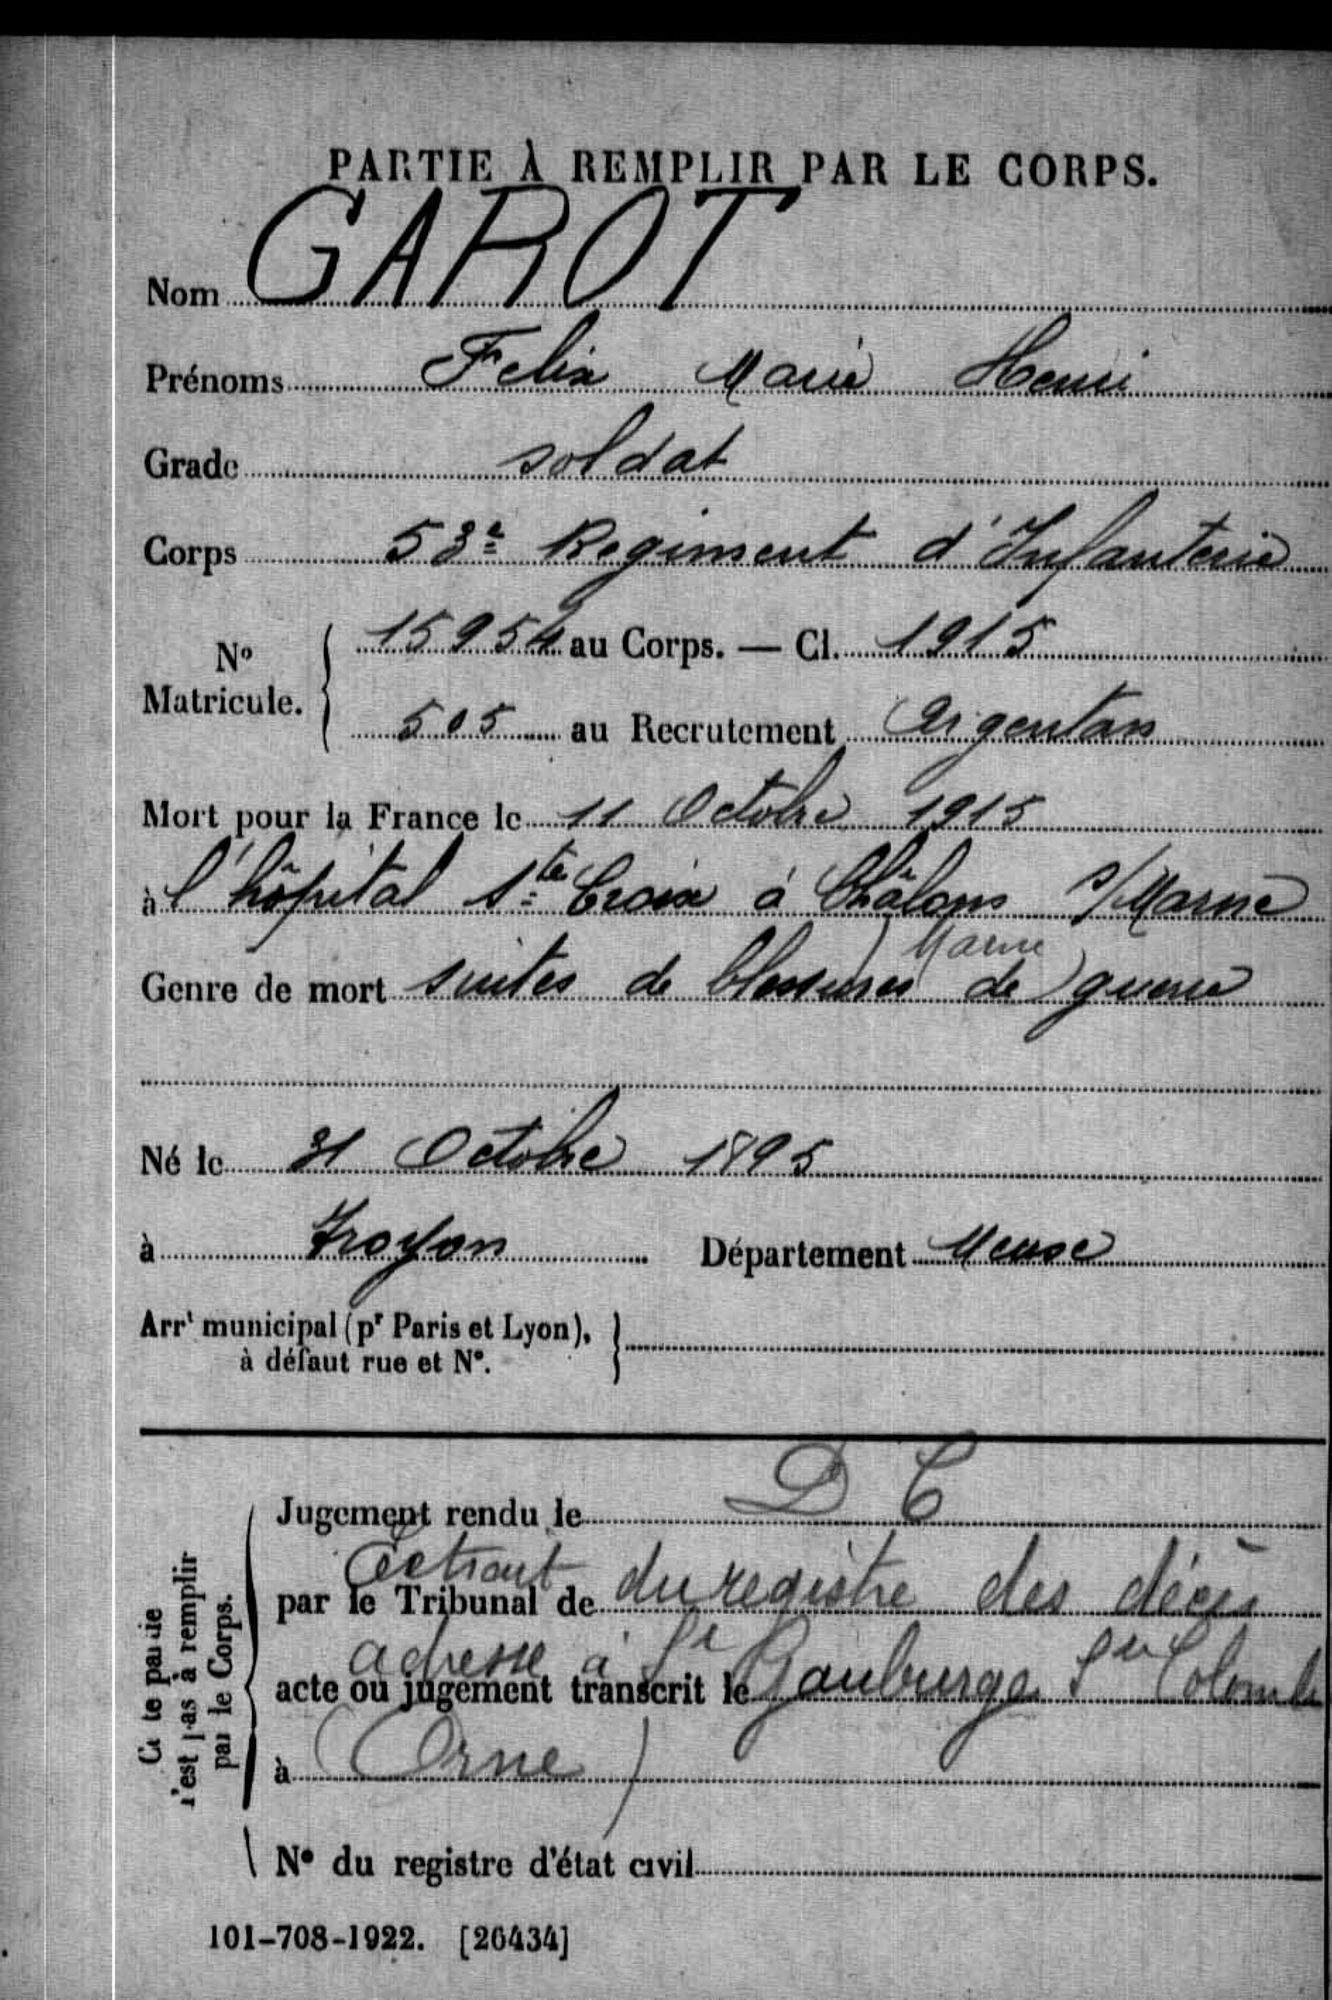 PARTIE À REMPLIR PAR LE CORPS.
Nom GAROT
Prénoms Felix Marie Henri
Grade soldat
Corps 53e Regiment d'Infanterie
No Matricule. 15954 au Corps. — Cl. 1915
505 au Recrutement Argentan
Mort pour la France le 11 Octobre 1915
à l'hôpital Ste Croix à Châlons s/Marne
Marne
Genre de mort suites de blessures de guerre
Né le 31 Octobre 1895
à Troyon Département Meuse
Arrt municipal (pr Paris et Lyon),
à défaut rue et No.
Cette partie
n'est pas à remplir
par le Corps.
Jugement rendu le D C
Extrait
par le Tribunal de du registre des décès
adressé à Ste
acte ou jugement transcrit le Gauburge Ste Colombe
à (Orne)
No du registre d'état civil
101-708-1922. [26434]